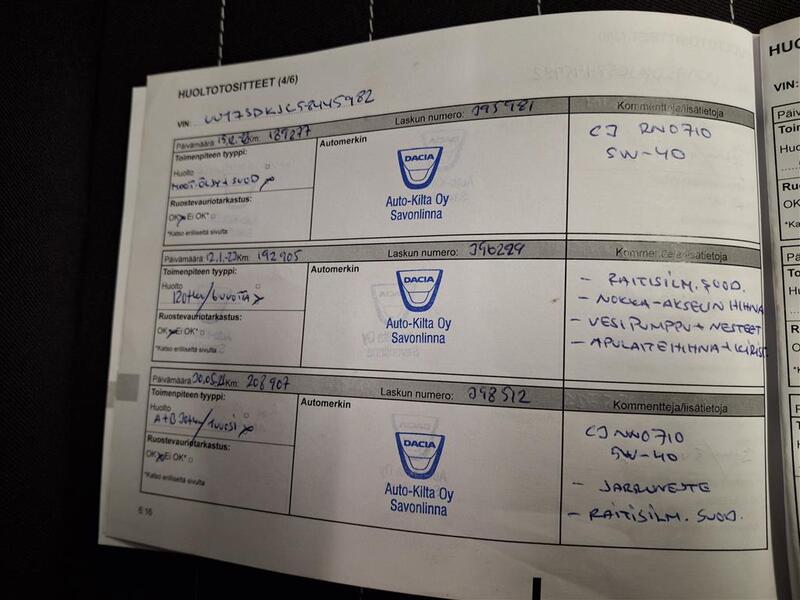 HUOLTOTOSITTEET (4/6)
VIN:
Päivämäärä Km: 189277 Laskun numero: 395981 Kommentteja/lisätietoja
Toimenpiteen tyyppi: Automerkin
Huolto
MOOT.ÖLJY+SUOD x
Ruostevauriotarkastus:
OK x Ei OK*
*Katso erilliseltä sivulta
DACIA
Auto-Kilta Oy
Savonlinna
CJ RN0710
5W-40
Päivämäärä 12.1.-23 Km: 192905 Laskun numero: 396229 Kommentteja/lisätietoja
Toimenpiteen tyyppi: Automerkin
Huolto
120tkm/6vuotta x
Ruostevauriotarkastus:
OK x Ei OK*
*Katso erilliseltä sivulta
DACIA
Auto-Kilta Oy
Savonlinna
- RAITISILM. SUOD.
- NOKKA-AKSELIN HIHNA
- VESIPUMPPU + NESTEET
- APULAITEHIHNA + KIRIST
Päivämäärä Km: 208907 Laskun numero: 398512 Kommentteja/lisätietoja
Toimenpiteen tyyppi: Automerkin
Huolto
A+B /1vuosi x
Ruostevauriotarkastus:
OK x Ei OK*
*Katso erilliseltä sivulta
DACIA
Auto-Kilta Oy
Savonlinna
5W-40
- JARRUNESTE
- RAITISILM. SUOD.
6.16
VIN: